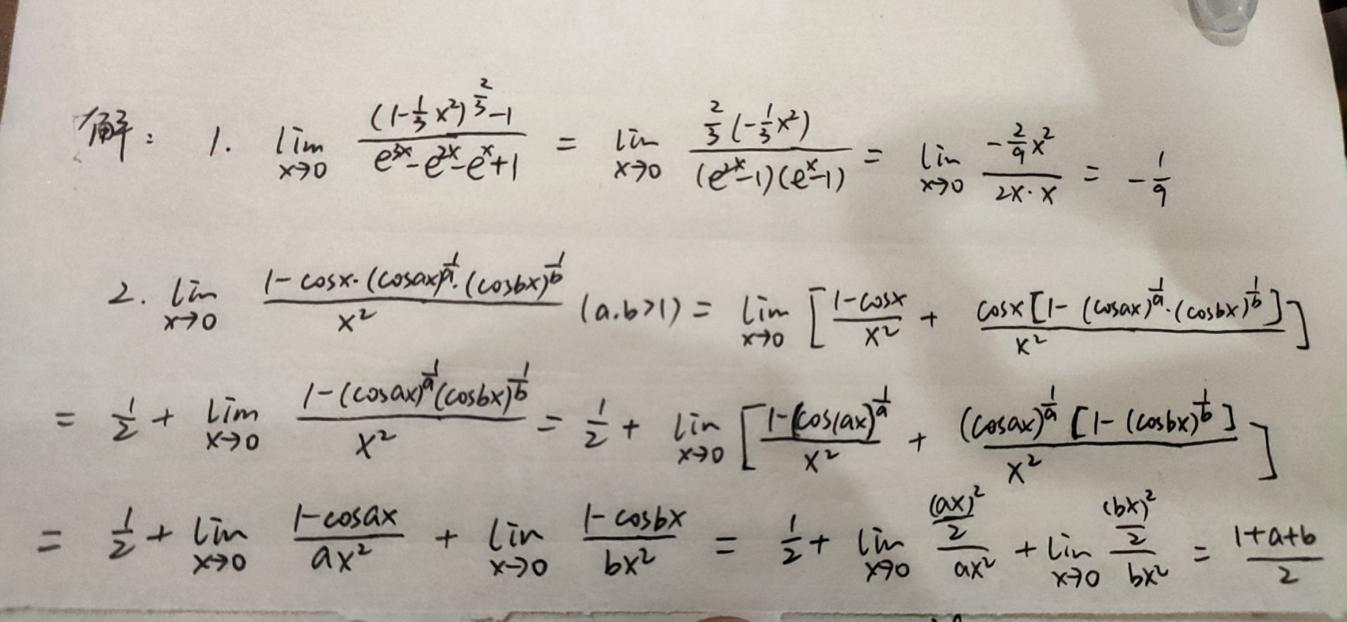 解: 1. lim_{x→0} \frac{(1-\frac{1}{3}x²)^{\frac{2}{3}}-1}{e^{3x}-e^{2x}-e^{x}+1} = lim_{x→0} \frac{\frac{2}{3}(-\frac{1}{3}x²)}{(e^{2x}-1)(e^{x}-1)} = lim_{x→0} \frac{-\frac{2}{9}x²}{2x·x} = -\frac{1}{9}
2. lim_{x→0} \frac{1-cosx·(cosax)^{\frac{1}{a}}·(cosbx)^{\frac{1}{b}}}{x²} (a.b>1) = lim_{x→0} [\frac{1-cosx}{x²} + \frac{cosx[1-(cosax)^{\frac{1}{a}}·(cosbx)^{\frac{1}{b}}]}{x²}]
= \frac{1}{2} + lim_{x→0} \frac{1-(cosax)^{\frac{1}{a}}(cosbx)^{\frac{1}{b}}}{x²} = \frac{1}{2} + lim_{x→0} [\frac{1-(cos(ax)^{\frac{1}{a}}}{x²} + \frac{(cosax)^{\frac{1}{a}}[1-(cosbx)^{\frac{1}{b}}]}{x²}]
= \frac{1}{2} + lim_{x→0} \frac{1-cosax}{ax²} + lim_{x→0} \frac{1-cosbx}{bx²} = \frac{1}{2} + lim_{x→0} \frac{\frac{(ax)²}{2}}{ax²} + lim_{x→0} \frac{\frac{(bx)²}{2}}{bx²} = \frac{1+a+b}{2}